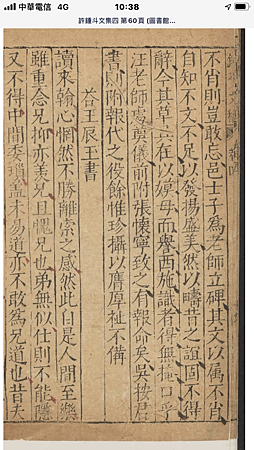 中華電信 4G 10:38
許鍾斗文集四 第60頁 (圖書館...
不肖則豈敢忘邑士子為老師立碑其文以屬不肖
自知不文不足以發揚盛美然以疇昔之誼固不得
辭今其草立在以嫫母而譽西施識者得無掩口乎
汪老師處儀前附張懷寧致之有報命矣吳按君
書則附報代之後餘惟珍攝以膺厚祉不備
荅王辰玉書
讀來翰心惘然不勝離索之感然此自是人間至樂
雖重念兄抑亦羨兄且愧兄也弟無似仕則不能隱
又不得中間委瑣盖未易道亦不敢為兄道也昔夫